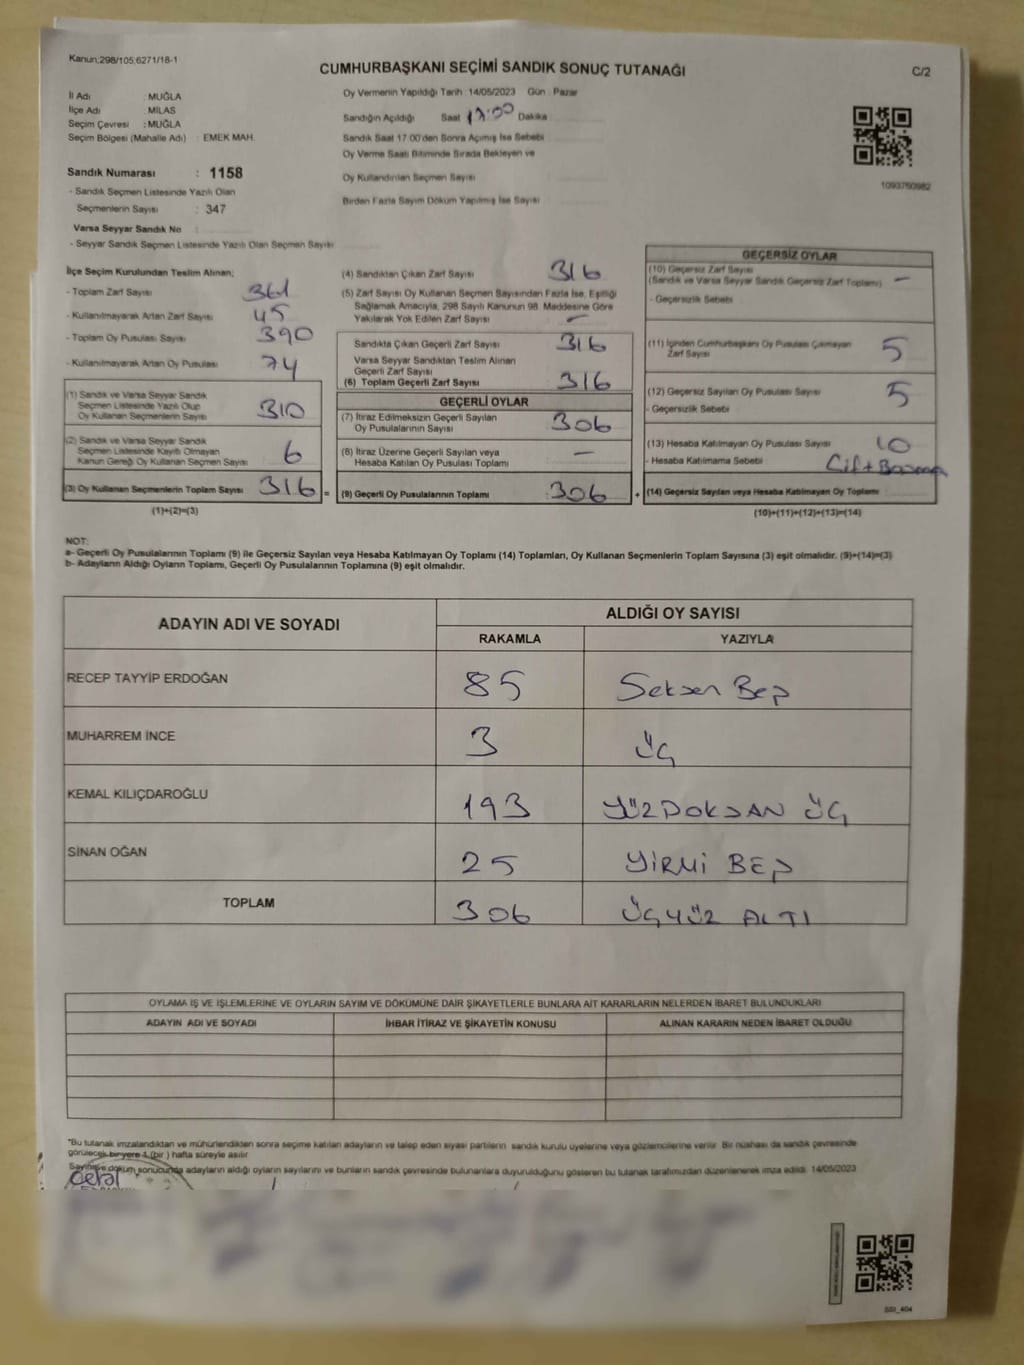 Kanun;298/105;6271/18-1
CUMHURBAŞKANI SEÇİMİ SANDIK SONUÇ TUTANAĞI
C/2
İl Adı : MUĞLA
İlçe Adı : MİLAS
Seçim Çevresi : MUĞLA
Seçim Bölgesi (Mahalle Adı) : EMEK MAH.
Sandık Numarası : 1158
- Sandık Seçmen Listesinde Yazılı Olan
Seçmenlerin Sayısı : 347
Varsa Seyyar Sandık No :
- Seyyar Sandık Seçmen Listesinde Yazılı Olan Seçmen Sayısı
Oy Vermenin Yapıldığı Tarih :14/05/2023 Gün : Pazar
Sandığın Açıldığı Saat 17:00 Dakika
Sandık Saat 17.00'den Sonra Açılmış İse Sebebi
Oy Verme Saati Bitiminde Sırada Bekleyen ve
Oy Kullandırılan Seçmen Sayısı
Birden Fazla Sayım Döküm Yapılmış İse Sayısı
1093760982
İlçe Seçim Kurulundan Teslim Alınan;
- Toplam Zarf Sayısı 361
- Kullanılmayarak Artan Zarf Sayısı 45
- Toplam Oy Pusulası Sayısı 390
- Kullanılmayarak Artan Oy Pusulası 74
(1) Sandık ve Varsa Seyyar Sandık
Seçmen Listesinde Yazılı Olup
Oy Kullanan Seçmenlerin Sayısı 310
(2) Sandık ve Varsa Seyyar Sandık
Seçmen Listesinde Kayıtlı Olmayan
Kanun Gereği Oy Kullanan Seçmen Sayısı 6
(3) Oy Kullanan Seçmenlerin Toplam Sayısı 316 =
(1)+(2)=(3)
(4) Sandıktan Çıkan Zarf Sayısı 316
(5) Zarf Sayısı Oy Kullanan Seçmen Sayısından Fazla İse, Eşitliği
Sağlamak Amacıyla, 298 Sayılı Kanunun 98. Maddesine Göre
Yakılarak Yok Edilen Zarf Sayısı –
Sandıkta Çıkan Geçerli Zarf Sayısı 316
Varsa Seyyar Sandıktan Teslim Alınan
Geçerli Zarf Sayısı
(6) Toplam Geçerli Zarf Sayısı 316
GEÇERLİ OYLAR
(7) İtiraz Edilmeksizin Geçerli Sayılan
Oy Pusulalarının Sayısı 306
(8) İtiraz Üzerine Geçerli Sayılan veya
Hesaba Katılan Oy Pusulası Toplamı –
(9) Geçerli Oy Pusulalarının Toplamı :306 +
GEÇERSİZ OYLAR
(10) Geçersiz Zarf Sayısı
(Sandık ve Varsa Seyyar Sandık Geçersiz Zarf Toplamı) –
- Geçersizlik Sebebi
(11) İçinden Cumhurbaşkanı Oy Pusulası Çıkmayan
Zarf Sayısı 5
(12) Geçersiz Sayılan Oy Pusulası Sayısı 5
- Geçersizlik Sebebi
(13) Hesaba Katılmayan Oy Pusulası Sayısı 10
- Hesaba Katılmama Sebebi
(14) Geçersiz Sayılan veya Hesaba Katılmayan Oy Toplamı
(10)+(11)+(12)+(13)=(14)
NOT:
a- Geçerli Oy Pusulalarının Toplamı (9) ile Geçersiz Sayılan veya Hesaba Katılmayan Oy Toplamı (14) Toplamları, Oy Kullanan Seçmenlerin Toplam Sayısına (3) eşit olmalıdır. (9)+(14)=(3)
b- Adayların Aldığı Oyların Toplamı, Geçerli Oy Pusulalarının Toplamına (9) eşit olmalıdır.
ADAYIN ADI VE SOYADI
ALDIĞI OY SAYISI
RAKAMLA YAZIYLA
RECEP TAYYİP ERDOĞAN 85 Seksen Beş
MUHARREM İNCE 3 ÜÇ
KEMAL KILIÇDAROĞLU 193 YÜZDOKSAN ÜÇ
SİNAN OĞAN 25 YİRMİ BEŞ
TOPLAM 306 ÜÇYÜZ ALTI
OYLAMA İŞ VE İŞLEMLERİNE VE OYLARIN SAYIM VE DÖKÜMÜNE DAİR ŞİKAYETLERLE BUNLARA AİT KARARLARIN NELERDEN İBARET BULUNDUKLARI
ADAYIN ADI VE SOYADI İHBAR İTİRAZ VE ŞİKAYETİN KONUSU ALINAN KARARIN NEDEN İBARET OLDUĞU
*Bu tutanak imzalandıktan ve mühürlendikten sonra seçime katılan adayların ve talep eden siyasi partilerin sandık kurulu üyelerine veya gözlemcilerine verilir. Bir nüshası da sandık çevresinde
görülecek bir yere 1 (bir ) hafta süreyle asılır.
Sayım ve döküm sonucunda adayların aldığı oyların sayılarını ve bunların sandık çevresinde bulunanlara duyurulduğunu gösteren bu tutanak tarafımızdan düzenlenerek imza edildi. 14/05/2023
SSI_404